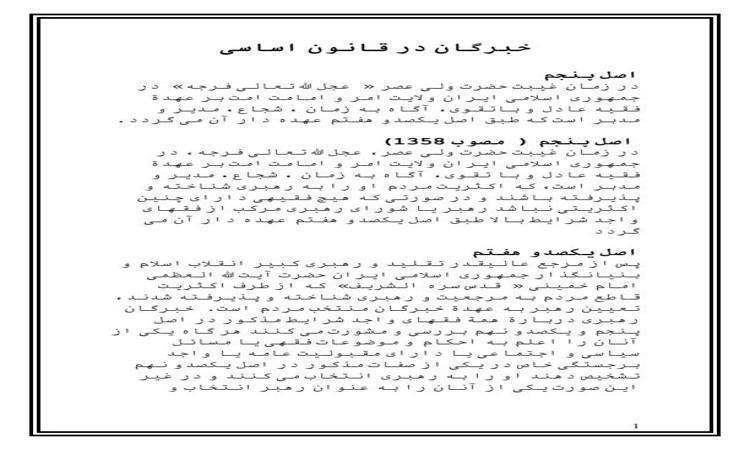 خبرگان در قانون اساسی
اصل پنجم
در زمان غیبت حضرت ولی عصر « عجل الله تعالی فرجه» در
جمهوری اسلامی ایران ولایت امر و امامت امت بر عهدة
فقیه عادل و باتقوی، آگاه به زمان ، شجاع، مدیر و
مدبر است که طبق اصل یکصدو هفتم عهده دار آن می گردد.
اصل پنجم ( مصوب 1358)
در زمان غیبت حضرت ولی عصر، عجل الله تعالی فرجه، در
جمهوری اسلامی ایران ولایت امر و امامت امت بر عهدة
فقیه عادل و با تقوی، آگاه به زمان ، شجاع، مدیر و
مدبر است، که اکثریت مردم او را به رهبری شناخته و
پذیرفته باشند و در صورتی که هیچ فقیهی دارای چنین
اکثریتی نباشد رهبر یا شورای رهبری مرکب از فقهای
واجد شرایط بالا طبق اصل یکصدو هفتم عهده دار آن می
گردد
اصل یکصدو هفتم
پس از مرجع عالیقدر تقلید و رهبری کبیر انقلاب اسلام و
بنیانگذار جمهوری اسلامی ایران حضرت آیت الله العظمی
امام خمینی « قدس سره الشریف» که از طرف اکثریت
قاطع مردم به مرجعیت و رهبری شناخته و پذیرفته شدند،
تعیین رهبر به عهدة خبرگان منتخب مردم است. خبرگان
رهبری دربارة همة فقهای واجد شرایط مذکور در اصل
پنجم و یکصدو نهم بررسی و مشورت می کنند هرگاه یکی از
آنان را اعلم به احکام و موضوعات فقهی یا مسائل
سیاسی و اجتماعی یا دارای مقبولیت عامه یا واجد
برجستگی خاص در یکی از صفات مذکور در اصل یکصدو نهم
تشخیص دهند او را به رهبری انتخاب می کنند و در غیر
این صورت یکی از آنان را به عنوان رهبر انتخاب و
1